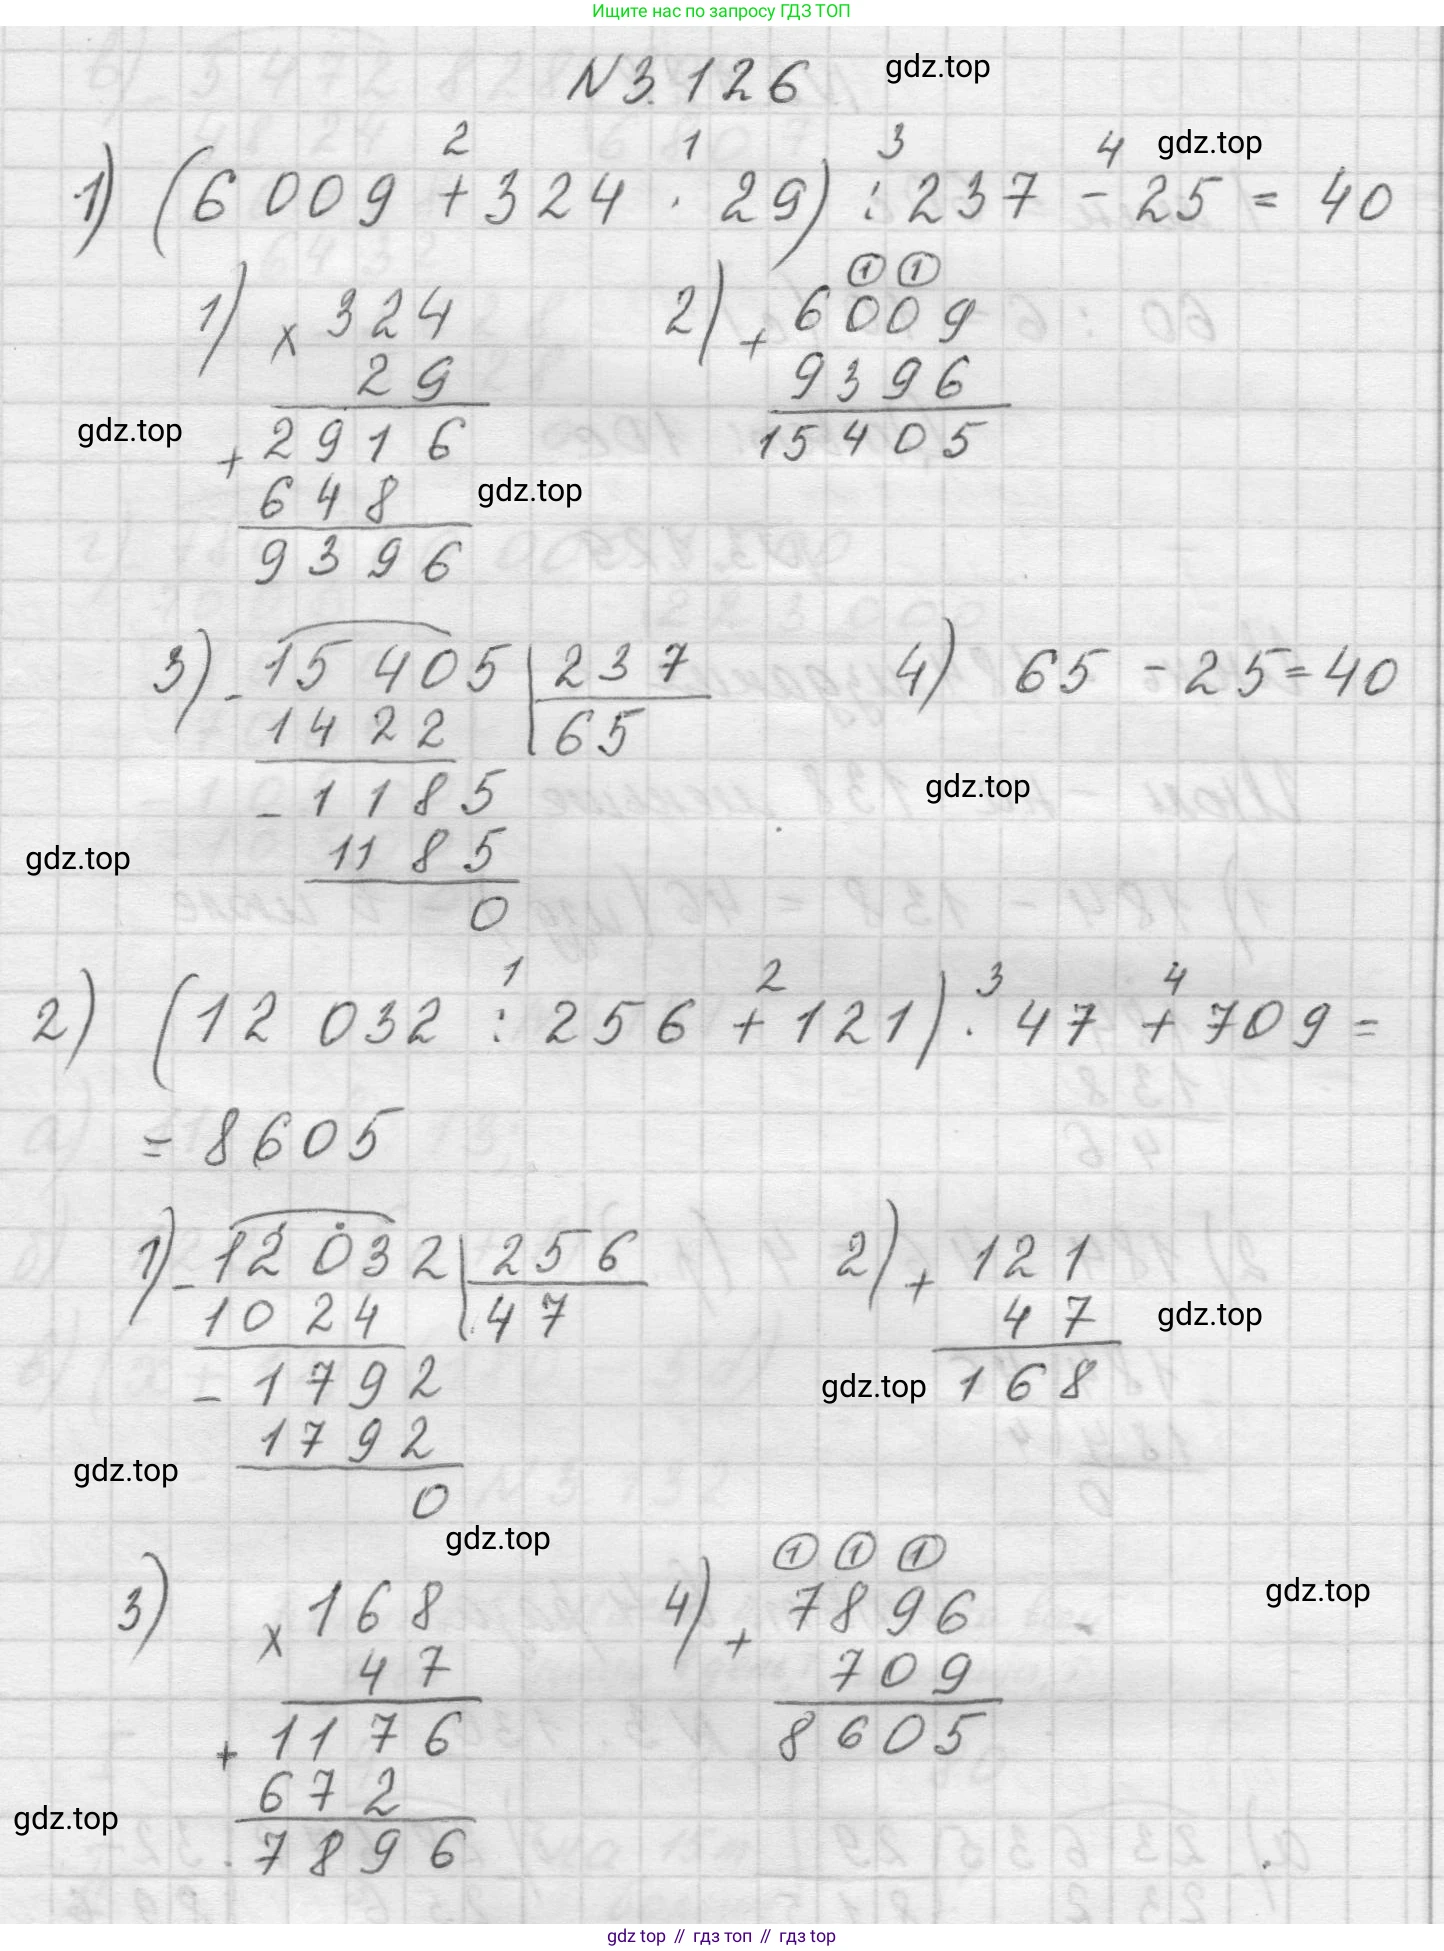 Ищите нас по запросу ГДЗ ТОП
N 3.126
gdz.top
2 1 3 4
gdz.top
1) (6 009 + 324 · 29) : 237 - 25 = 40
1) × 324
29
+ 2916
648
9396
2) + 6009
1 1
9396
15405
gdz.top
gdz.top
3) - 15 405 | 237
1422 | 65
- 1185
1185
0
4) 65 - 25 = 40
gdz.top
gdz.top
1 2 3 4
2) (12 032 : 256 + 121) · 47 + 709 =
= 8605
1) - 12 032 | 256
1024 | 47
- 1792
1792
0
2) + 121
47
168
gdz.top
gdz.top
gdz.top
gdz.top
3) × 168
47
+ 1176
672
7896
4) + 7896
1 1 1
709
8605
gdz.top
gdz.top
gdz top // гдз топ // гдз top